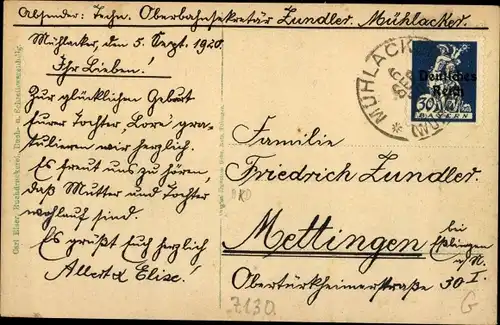 Absender: Techn. Oberbahnsekretär Zundler. Mühlacker.
Mühlacker, den 5. Sept. 1920.
Ihr Lieben!
Zur glücklichen Geburt
Eurer Tochter „Lore“ gra-
tulieren wir herzlich.
Es freut uns zu hören,
daß Mutter und Tochter
wohlauf sind.
Es grüßt Euch herzlich
Albert & Elise!
MÜHLACKER
Deutsches
Reich
30
BAYERN
Familie
Friedrich Zundler.
Mettingen bei
Eßlingen
a/N.
Obertürkheimerstraße 30 I.
7130.
G
Carl Elser, Buchdruckerei,